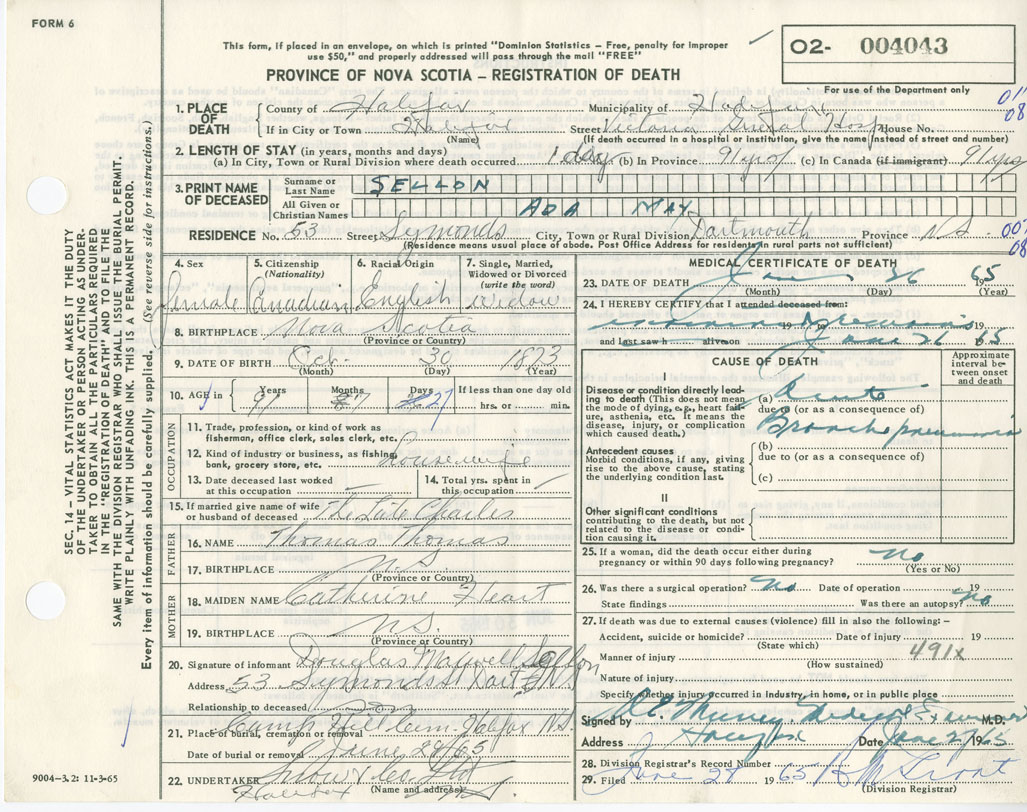 FORM 6
This form, if placed in an envelope, on which is printed "Dominion Statistics – Free, penalty for improper
use $50," and properly addressed will pass through the mail "FREE"
PROVINCE OF NOVA SCOTIA – REGISTRATION OF DEATH
O2- 004043
For use of the Department only
1. PLACE OF DEATH
County of Halifax Municipality of Halifax
If in City or Town Halifax Street Victoria General Hosp House No.
(Name) (If death occurred in a hospital or institution, give the name instead of street and number)
2. LENGTH OF STAY (in years, months and days)
(a) In City, Town or Rural Division where death occurred 1 day (b) In Province 91 yrs (c) In Canada (if immigrant) 91 yrs
3. PRINT NAME OF DECEASED
Surname or Last Name SELLON
All Given or Christian Names ADA MAY
RESIDENCE No. 53 Street Symonds City, Town or Rural Division Dartmouth Province N.S.
(Residence means usual place of abode. Post Office Address for residents in rural parts not sufficient)
4. Sex
female
5. Citizenship (Nationality)
Canadian
6. Racial Origin
English
7. Single, Married, Widowed or Divorced (write the word)
widow
8. BIRTHPLACE Nova Scotia
(Province or Country)
9. DATE OF BIRTH 30 1873
(Month) (Day) (Year)
10. AGE in Years Months Days If less than one day old
91 27 hrs. or min.
OCCUPATION
11. Trade, profession, or kind of work as
fisherman, office clerk, sales clerk, etc.
12. Kind of industry or business, as fishing,
bank, grocery store, etc. housewife
13. Date deceased last worked
at this occupation
14. Total yrs. spent in
this occupation
15. If married give name of wife
or husband of deceased The Late Charles
FATHER
16. NAME Thomas Thomas
17. BIRTHPLACE N.S.
(Province or Country)
MOTHER
18. MAIDEN NAME Catherine Heart
19. BIRTHPLACE N.S.
(Province or Country)
20. Signature of informant Douglas Maxwell Sellon
Address 53 Symonds St Dart N.S.
Relationship to deceased Son
21. Camp Hill Cem. Halifax N.S.
Place of burial, cremation or removal
Date of burial or removal June 28/65
22. UNDERTAKER Snow
Halifax
(Name and address)
MEDICAL CERTIFICATE OF DEATH
23. DATE OF DEATH June 26 1965
(Month) (Day) (Year)
24. I HEREBY CERTIFY that I attended deceased from:
19 to 19
and last saw h alive on June 26 65
CAUSE OF DEATH
Approximate interval between onset and death
I
Disease or condition directly leading
to death (This does not mean
the mode of dying, e.g., heart failure,
asthenia, etc. It means the
disease, injury, or complication
which caused death.)
(a) Acute
due to (or as a consequence of)
Bronchopneumonia
Antecedent causes
Morbid conditions, if any, giving
rise to the above cause, stating
the underlying condition last.
(b)
due to (or as a consequence of)
(c)
II
Other significant conditions
contributing to the death, but not
related to the disease or condition
causing it.
25. If a woman, did the death occur either during
pregnancy or within 90 days following pregnancy? No
(Yes or No)
26. Was there a surgical operation? No Date of operation 19
State findings Was there an autopsy? No
27. If death was due to external causes (violence) fill in also the following:–
Accident, suicide or homicide? Date of injury 19
(State which)
Manner of injury 491X
(How sustained)
Nature of injury
Specify whether injury occurred in industry, in home, or in public place
Signed by Murray Medical Examiner M.D.
Address Halifax Date June 27 1965
28. Division Registrar's Record Number
29. Filed June 28 1965
(Division Registrar)
SEC. 14 – VITAL STATISTICS ACT MAKES IT THE DUTY
OF THE UNDERTAKER OR PERSON ACTING AS UNDERTAKER
TO OBTAIN ALL THE PARTICULARS REQUIRED
IN THE "REGISTRATION OF DEATH" AND TO FILE THE
SAME WITH THE DIVISION REGISTRAR WHO SHALL ISSUE THE BURIAL PERMIT.
WRITE PLAINLY WITH UNFADING INK. THIS IS A PERMANENT RECORD.
Every item of information should be carefully supplied. (See reverse side for instructions.)
9004–3.2: 11-3-65